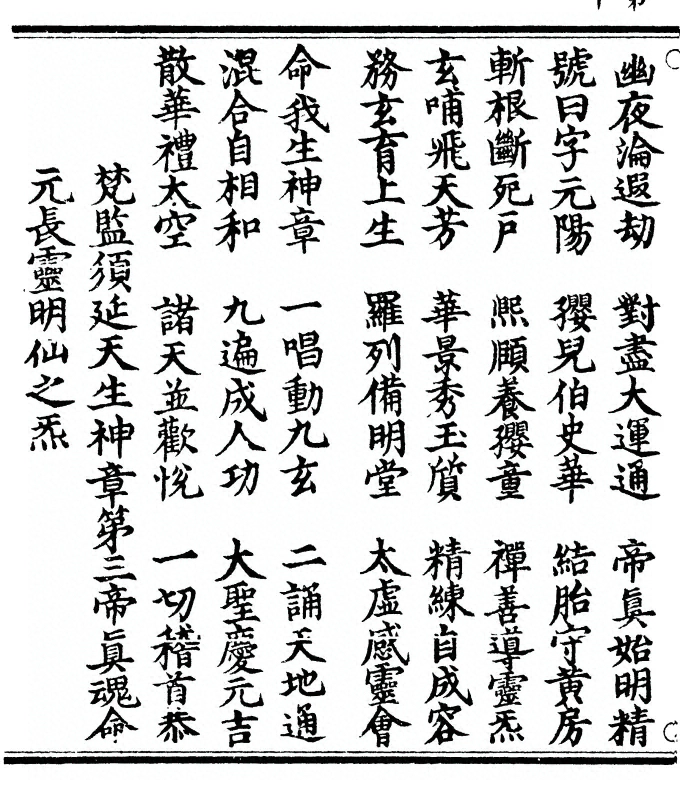 幽夜淪遐劫 對盡大運通 帝真始明精
號曰字元陽 㺅兒伯史華 結胎守黃房
斬根斷死戶 熙頤養㺅童 禪善導靈炁
玄哺飛天芳 華景秀玉質 精練自成容
務玄育上生 羅列備明堂 太虛感靈會
命我生神章 一唱動九玄 二誦天地通
混合自相和 九遍成人功 大聖慶元吉
散華禮太空 諸天並歡悅 一切稽首恭
梵監須延天生神章第三帝真魂命
元長靈明仙之炁